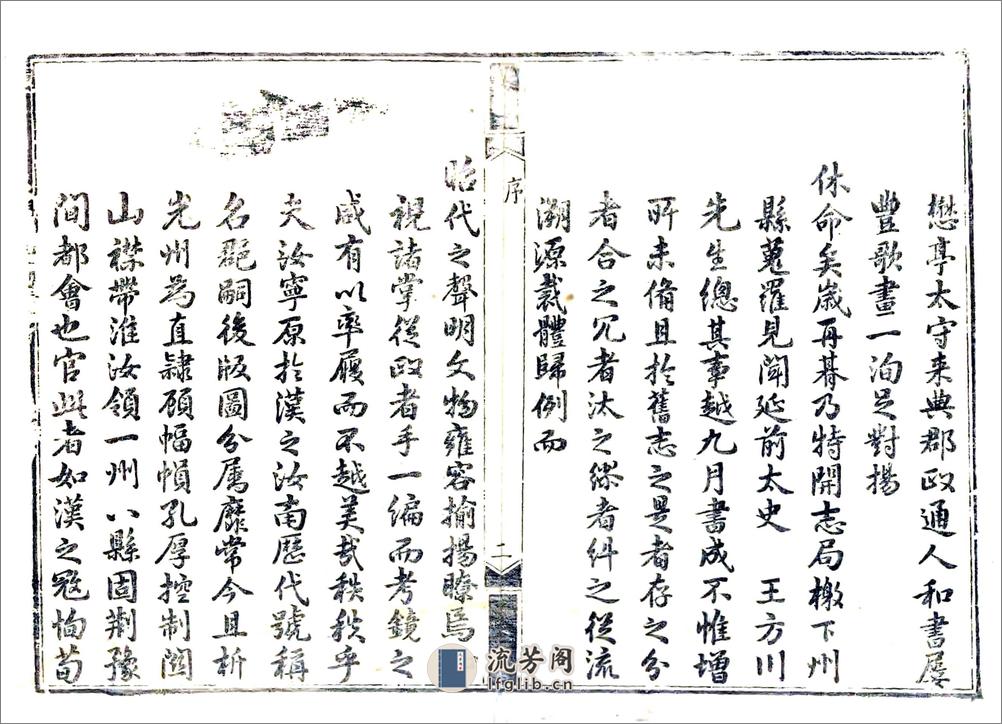 懋亭太守来典郡政通人和書屢
豐歌畫一洵足對揚
休命矣嵗再朞乃特開志局檄下州
縣蒐羅見聞延前太史 王方川
先生總其事越九月書成不惟增
所未備且於舊志之是者存之分
者合之冗者汰之繆者糾之從流
溯源裁體歸例而
序
二
昭代之聲明文物雍容揄揚瞭焉
視諸掌從政者手一編而考鏡之
咸有以率履而不越美哉秩秩乎
夫汝寧原於漢之汝南歷代號稱
名郡嗣後版圖分屬靡常今且析
光州為直隸顧幅幀孔厚控制関
山襟帶淮汝領一州八縣固荆豫
間都會也官此者如漢之冦恂荀
流芳阁
lfglib.cn